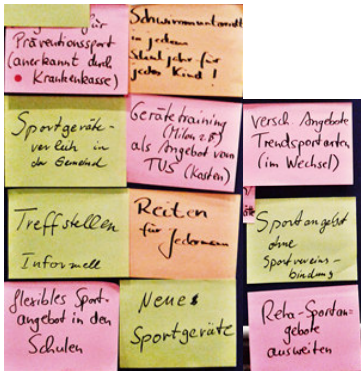 für
Präventionssport
(anerkannt durch
Krankenkasse)
Schwimmunterricht
in jedem
Schuljahr für
jedes Kind!
Sportgeräte-
verleih in
der Gemeind
Gerätetraining
(Milon z.B)
als Angebot vom
TUS (Kosten)
versch. Angebote
Trendsportarten
(im Wechsel)
Treffstellen
Informell
Reiten
für Jedermann
Sportangebot
ohne
Sportvereins-
bindung
flexibles Sport-
angebot in den
Schulen
Neues
Sportgeräte
Reha-Sportan-
gebote
ausweiten